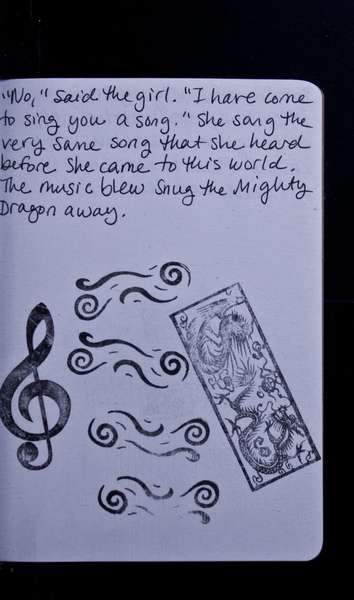 "No," said the girl. "I have come
to sing you a song." She sang the
very same song that she heard
before she came to this world.
The music blew Snug the Mighty
Dragon away.